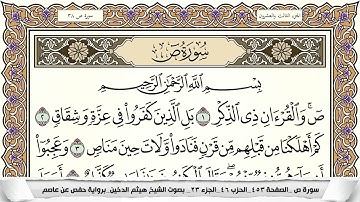 الجزء الثالث والعشرون
سورة ص ٣٨
سُورَةُ صٓ
بِسْمِ اللَّهِ الرَّحْمَٰنِ الرَّحِيمِ
صٓ ۚ وَالْقُرْءَانِ ذِي الذِّكْرِ ١ بَلِ الَّذِينَ كَفَرُوا فِي عِزَّةٍ وَشِقَاقٍ ٢
كَمْ أَهْلَكْنَا مِن قَبْلِهِم مِّن قَرْنٍ فَنَادَوا وَّلَاتَ حِينَ مَنَاصٍ ٣ وَعَجِبُوٓا
سورة ص _الصفحة ٤٥٣ _الحزب ٤٦ _الجزء ٢٣ _بصوت الشيخ هيثم الدخين _برواية حفص عن عاصم